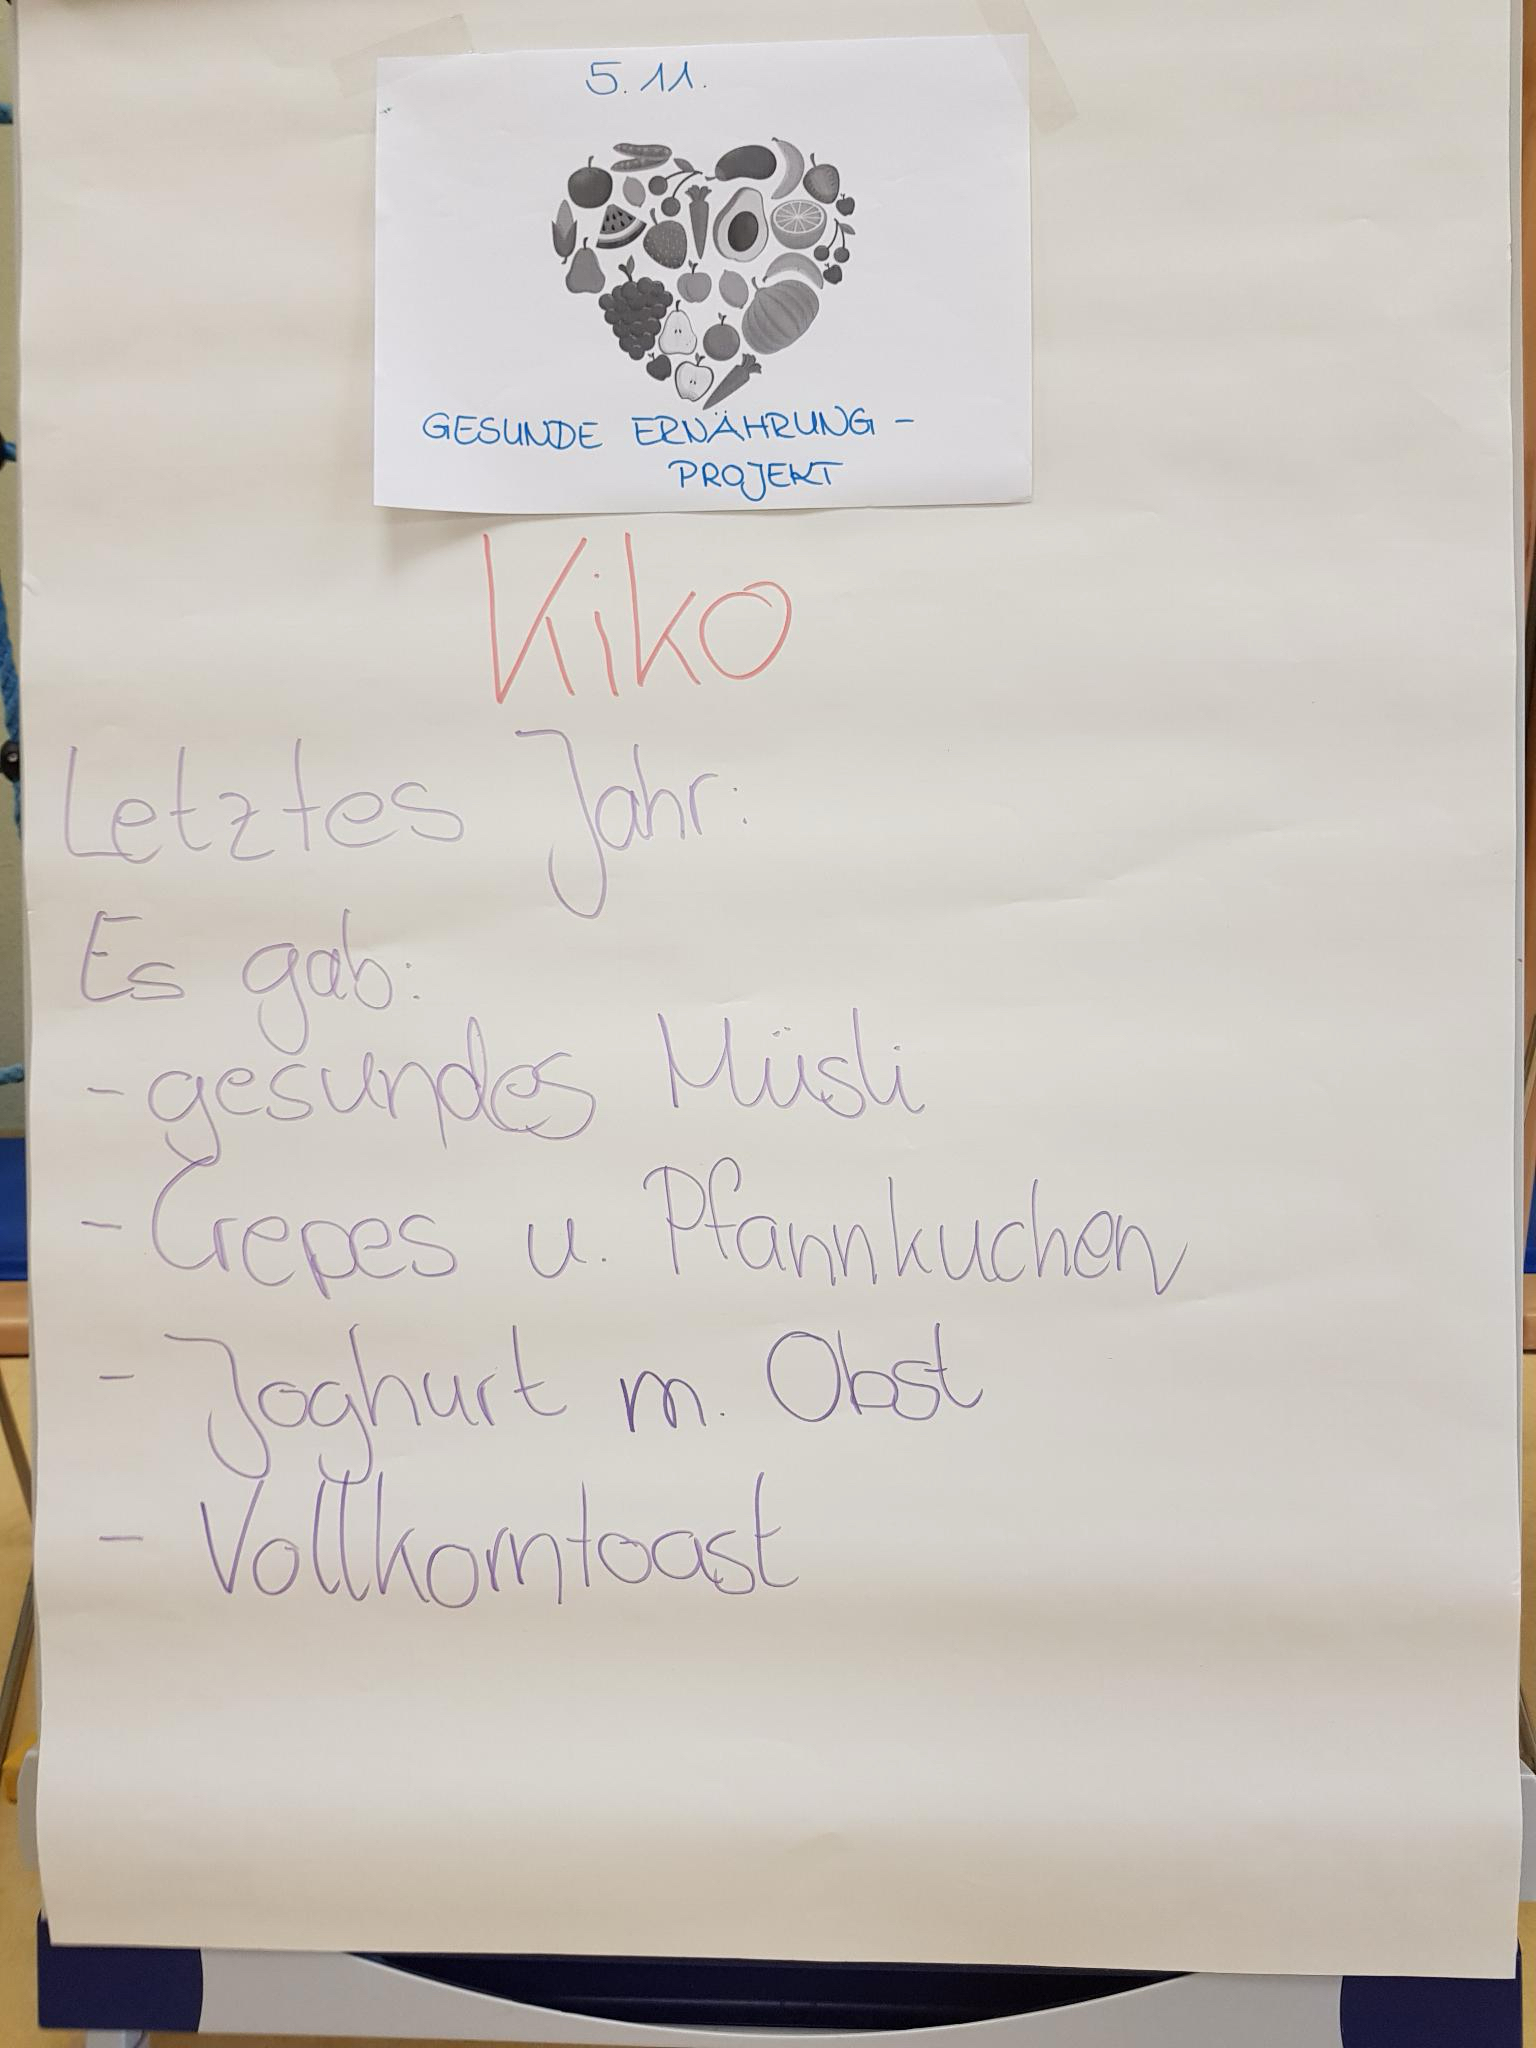 5. 11.
GESUNDE ERNÄHRUNG -
PROJEKT
Kiko
Letztes Jahr:
Es gab:
- gesundes Müsli
- Crepes u. Pfannkuchen
- Joghurt m. Obst
- Vollkorntoast